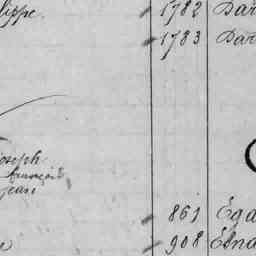 lippe. 1782 Dar
1783 Dar
Joseph
François
Jean
861 Ega
908 Etna